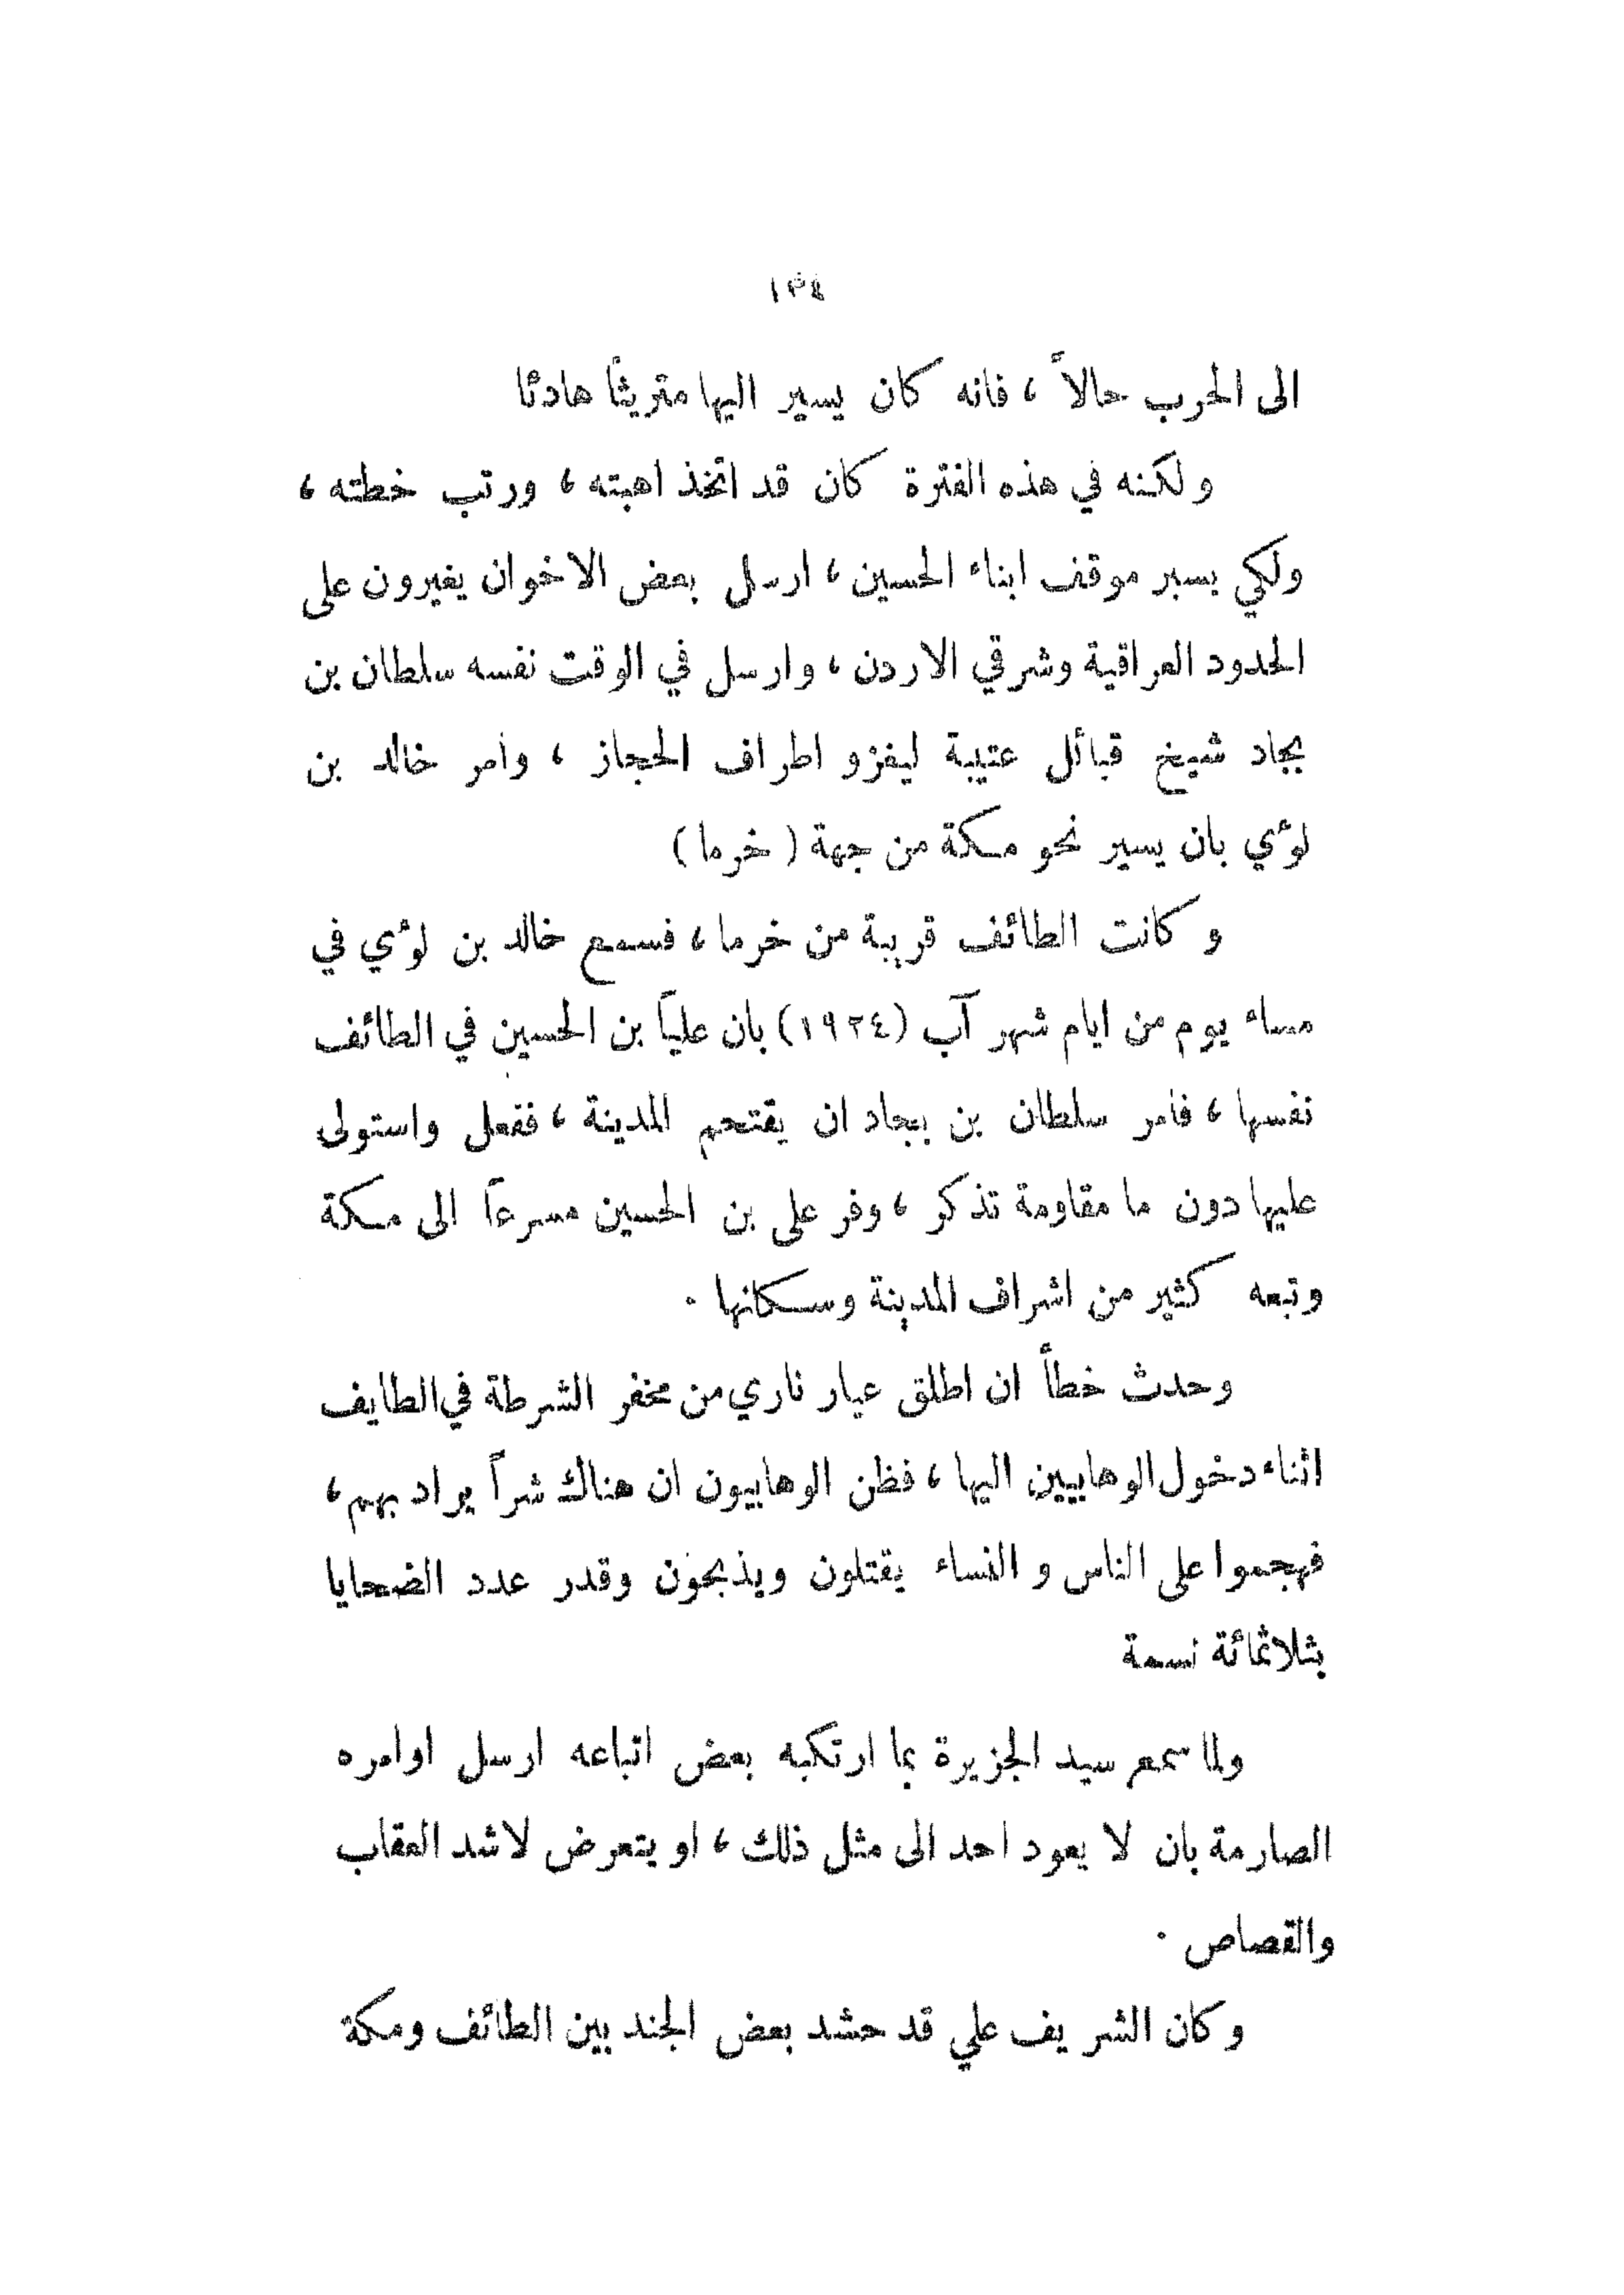 الى الحرب حالاً ، فانه كان يسير اليها متريثاً هادئا
ولكنه في هذه الفترة كان قد اتخذ اهبته ، ورتب خطته ،
ولكي يسبر موقف ابناء الحسين ، ارسل بعض الاخوان يغيرون على
الحدود العراقية وشرقي الاردن ، وارسل في الوقت نفسه سلطان بن
بجاد شيخ قبائل عتيبة ليغزو اطراف الحجاز ، وأمر خالد بن
لوءي بان يسير نحو مكة من جهة ( خرما )
وكانت الطائف قريبة من خرما ، فسمع خالد بن لوءي في
مساء يوم من ايام شهر آب (١٩٢٤) بان علياً بن الحسين في الطائف
نفسها ، فأمر سلطان بن بجاد ان يقتحم المدينة ، ففعل واستولى
عليها دون ما مقاومة تذكر ، وفر على بن الحسين مسرعاً الى مكة
وتبعه كثير من اشراف المدينة وسكانها .
وحدث خطأً ان اطلق عيار ناري من مخفر الشرطة في الطايف
اثناء دخول الوهابيين اليها ، فظن الوهابيون ان هناك شراً يراد بهم ،
فهجموا على الناس و النساء يقتلون ويذبحون وقدر عدد الضحايا
بثلاثمائة نسمة
ولما سمع سيد الجزيرة بما ارتكبه بعض اتباعه ارسل اوامره
الصارمة بان لا يعود احد الى مثل ذلك ، او يتعرض لاشد العقاب
والقصاص .
وكان الشريف علي قد حشد بعض الجند بين الطائف ومكة